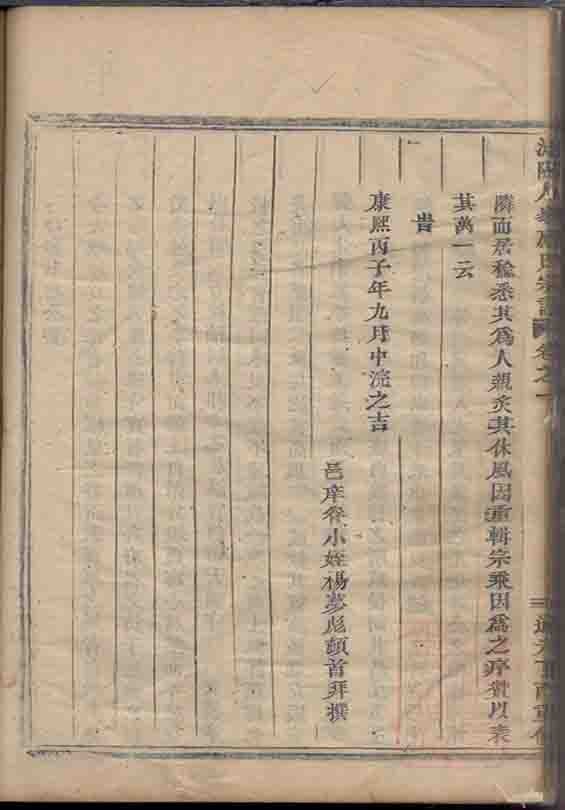 隣而居稔悉其爲人親炙其休風因重輯宗乘因爲之序贊以表
其萬一云
旹
康熙丙子年九月中浣之吉
邑庠眷小姪楊夢彪頓首拜撰